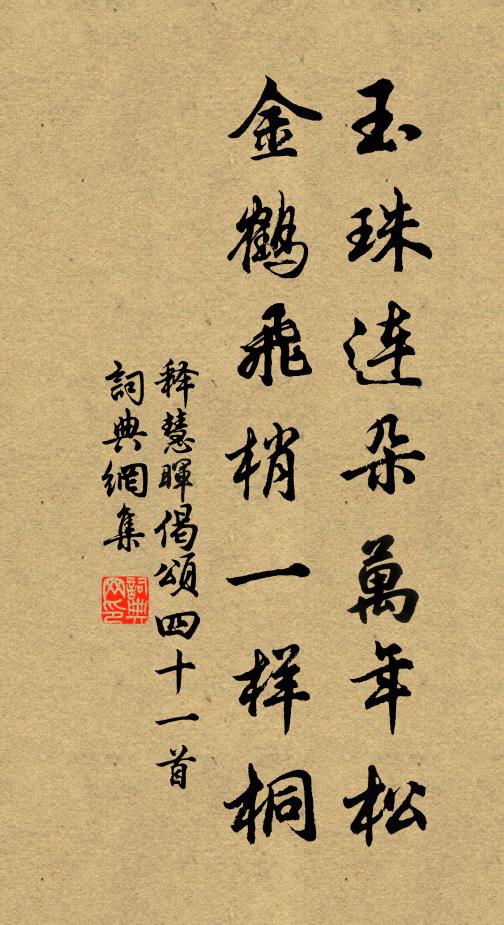 玉珠连朵萬年松
金鶴飛梢一样桐
释慧暉偈頌四十一首
詞典網集
詞典网印